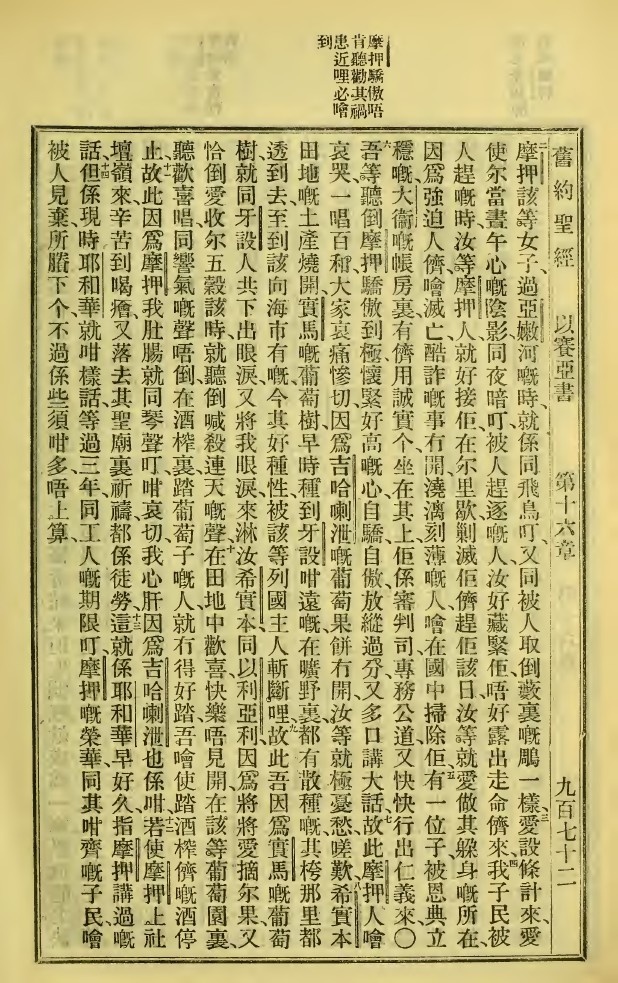 舊約聖經 以賽亞書 第十六章 九百七十二
摩押驕傲唔
肯聽勸其禍
患近哩必噲
到
二摩押該等女子、過亞嫩河嘅時、就係同飛鳥叮、又同被人取倒藪裏嘅鵰一樣、三愛設條計來、愛
使尔當晝午心嘅陰影同夜暗叮、被人趕逐嘅人、汝好藏緊佢、唔好露出走命儕來、四我子民被
人趕嘅時、汝等摩押人就好接佢在尔里歇、剿滅佢儕趕佢、該日汝等就愛做其躱身嘅所在、
因爲強迫人儕噲滅亡、酷詐嘅事冇開、澆漓刻薄嘅人、噲在國中掃除佢、五有一位子被恩典立
穩嘅、大衞嘅帳房裏有儕用誠實个坐在其上、佢係審判司、專務公道、又快快行出仁義來、〇
六吾等聽倒摩押驕傲到極、懷緊好高嘅心、自驕自傲、放縱過分、又多口講大話、七故此摩押人噲
哀哭、一唱百和、大家哀痛慘切、因爲吉哈喇泄嘅葡萄果餅冇開、汝等就極憂愁嗟歎、八希實本
田地嘅土產燒開、實馬嘅葡萄樹、早時種到牙設咁遠嘅、在曠野裏都有散種嘅、其桍那里都
透到去、至到該向海市有嘅、今其好種性被該等列國主人斬斷哩、九故此吾因爲實馬嘅葡萄
樹、就同牙設人共下出眼淚、又將我眼淚來淋汝希實本同以利亞利、因爲將將愛摘尔果、又
恰倒愛收尔五穀該時、就聽倒喊殺連天嘅聲、十在田地中歡喜快樂唔見開、在該等葡萄園裏、
聽歡喜唱同響氣嘅聲唔倒、在酒榨裏踏葡萄子嘅人、就冇得好踏、吾噲使踏酒榨儕嘅酒停
止、十一故此因爲摩押我肚腸就同琴聲叮咁哀切、我心肝因爲吉哈喇泄也係咁、十二若使摩押上社
壇嶺來、辛苦到喝癐、又落去其聖廟裏祈禱、都係徒勞、十三這就係耶和華早好久指摩押講過嘅
話、十四但係現時耶和華就咁樣話、等過三年同工人嘅期限叮、摩押嘅榮華、同其咁齊嘅子民、噲
被人見棄、所賸下个不過係些須、咁多唔上算、